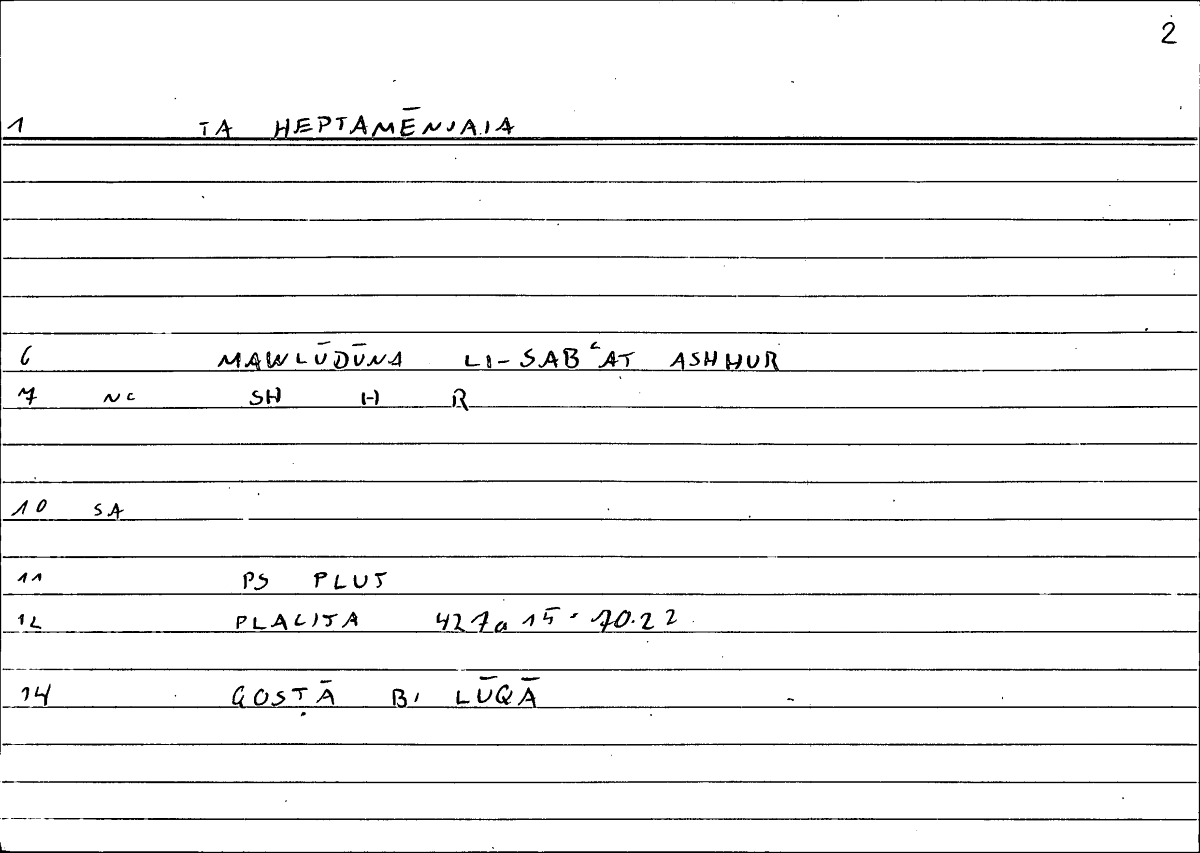 2
1 TA HEPTAMĒNIAIA
6 MAWLŪDŪNA LI-SABʿAT ASHHUR
7 NC SH H R
10 SA
11 PS PLUT
12 PLACITA 427a 15 - 70.22
14 QOSṬĀ B, LŪQĀ